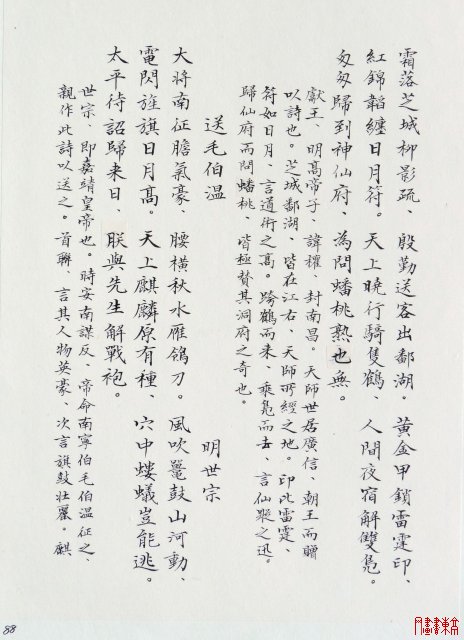 霜落芝城柳影疏、殷勤送客出鄱湖。黃金甲鎖雷霆印、
紅錦韜纏日月符。天上曉行騎雙鶴、人間夜宿解雙鳧。
匆匆歸到神仙府、為問蟠桃熟也無。
獻王、明高帝子、諱權、封南昌。天師世居廣信、朝王而贈
以詩也。芝城鄱湖、皆在江右、天師所經之地。印比雷霆、
符如日月、言道術之髙。跨鶴而来、乘鳧而去、言仙蹤之迅。
歸仙府而問蟠桃、皆極贊其洞府之奇也。
送毛伯溫
明世宗
大將南征膽氣豪、腰横秋水雁翎刀。風吹鼉鼓山河動、
電閃旌旗日月髙。天上麒麟原有種、穴中螻蟻豈能逃。
太平待詔歸来日、朕與先生解戰袍。
世宗、即嘉靖皇帝也。時安南謀反、帝命南寧伯毛伯溫征之、
親作此詩以送之。首聯言其人物英豪、次言旗鼓壯麗。麒
88